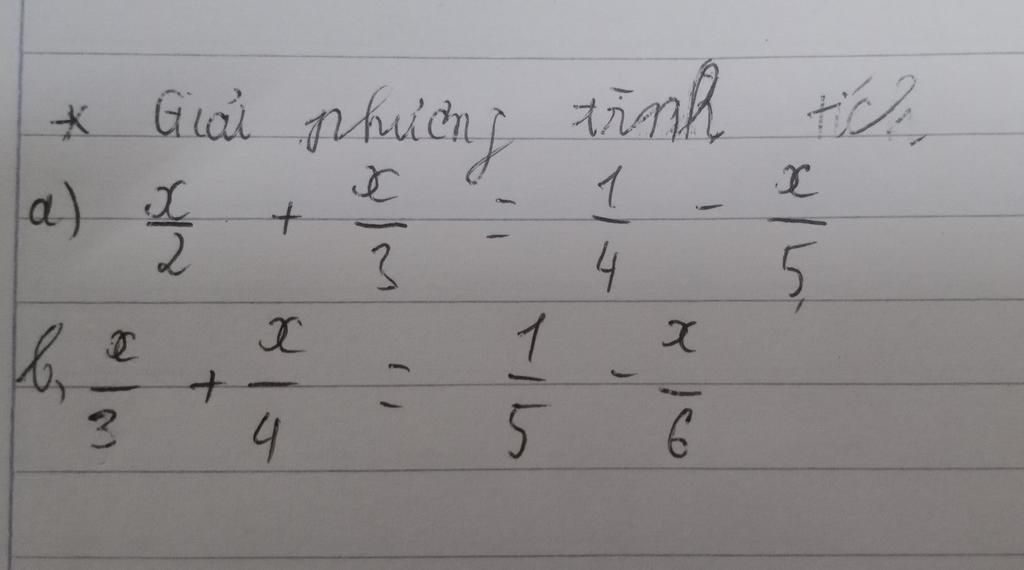 * Giải phương trình tích
a) x/2 + x/3 = 1/4 - x/5
b, x/3 + x/4 = 1/5 - x/6